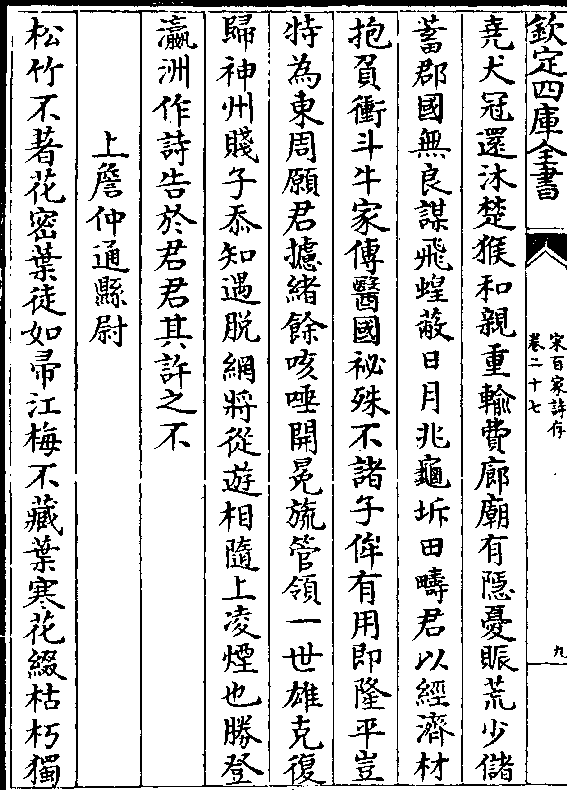 欽定四庫全書
宋百家詩存
卷二十七
九
堯犬冠還沐楚猴和親重輸費廊廟有隱憂賑荒少儲
蓄郡國無良謀飛蝗蔽日月兆龜坼田疇君以經濟材
抱負衝斗牛家傳醫國祕殊不諸子侔有用即隆平豈
特為東周願君攄緒餘咳唾開冕旒管領一世雄克復
歸神州賤子忝知遇脫網將從遊相隨上凌煙也勝登
瀛洲作詩告於君君其許之不
上詹仲通縣尉
松竹不著花密葉徒如帚江梅不藏葉寒花綴枯朽獨